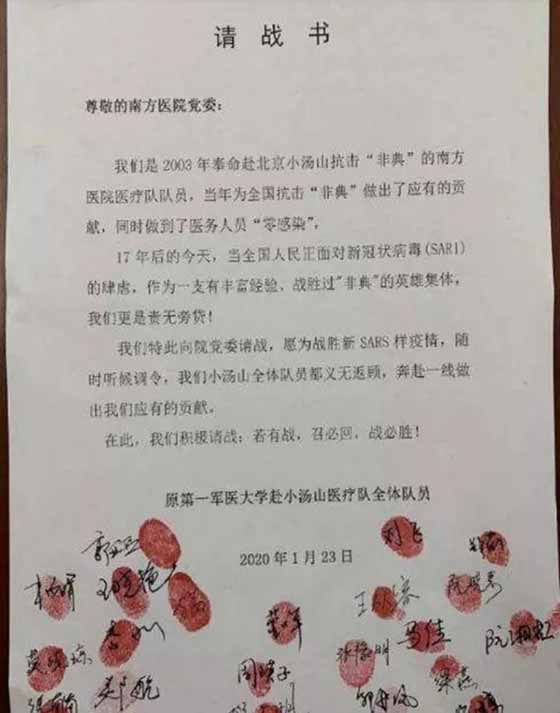 请战书
尊敬的南方医院党委：
我们是2003年奉命赴北京小汤山抗击“非典”的南方
医院医疗队队员，当年为全国抗击“非典”做出了应有的贡
献，同时做到了医务人员“零感染”。
17年后的今天，当全国人民正面对新冠状病毒(SARI)
的肆虐，作为一支有丰富经验、战胜过"非典"的英雄集体，
我们更是责无旁贷！
我们特此向院党委请战，愿为战胜新SARS样疫情，随
时听候调令，我们小汤山全体队员都义无返顾，奔赴一线做
出我们应有的贡献。
在此，我们积极请战：若有战，召必回，战必胜！
原第一军医大学赴小汤山医疗队全体队员
2020年1月23日
刘飞
马佳